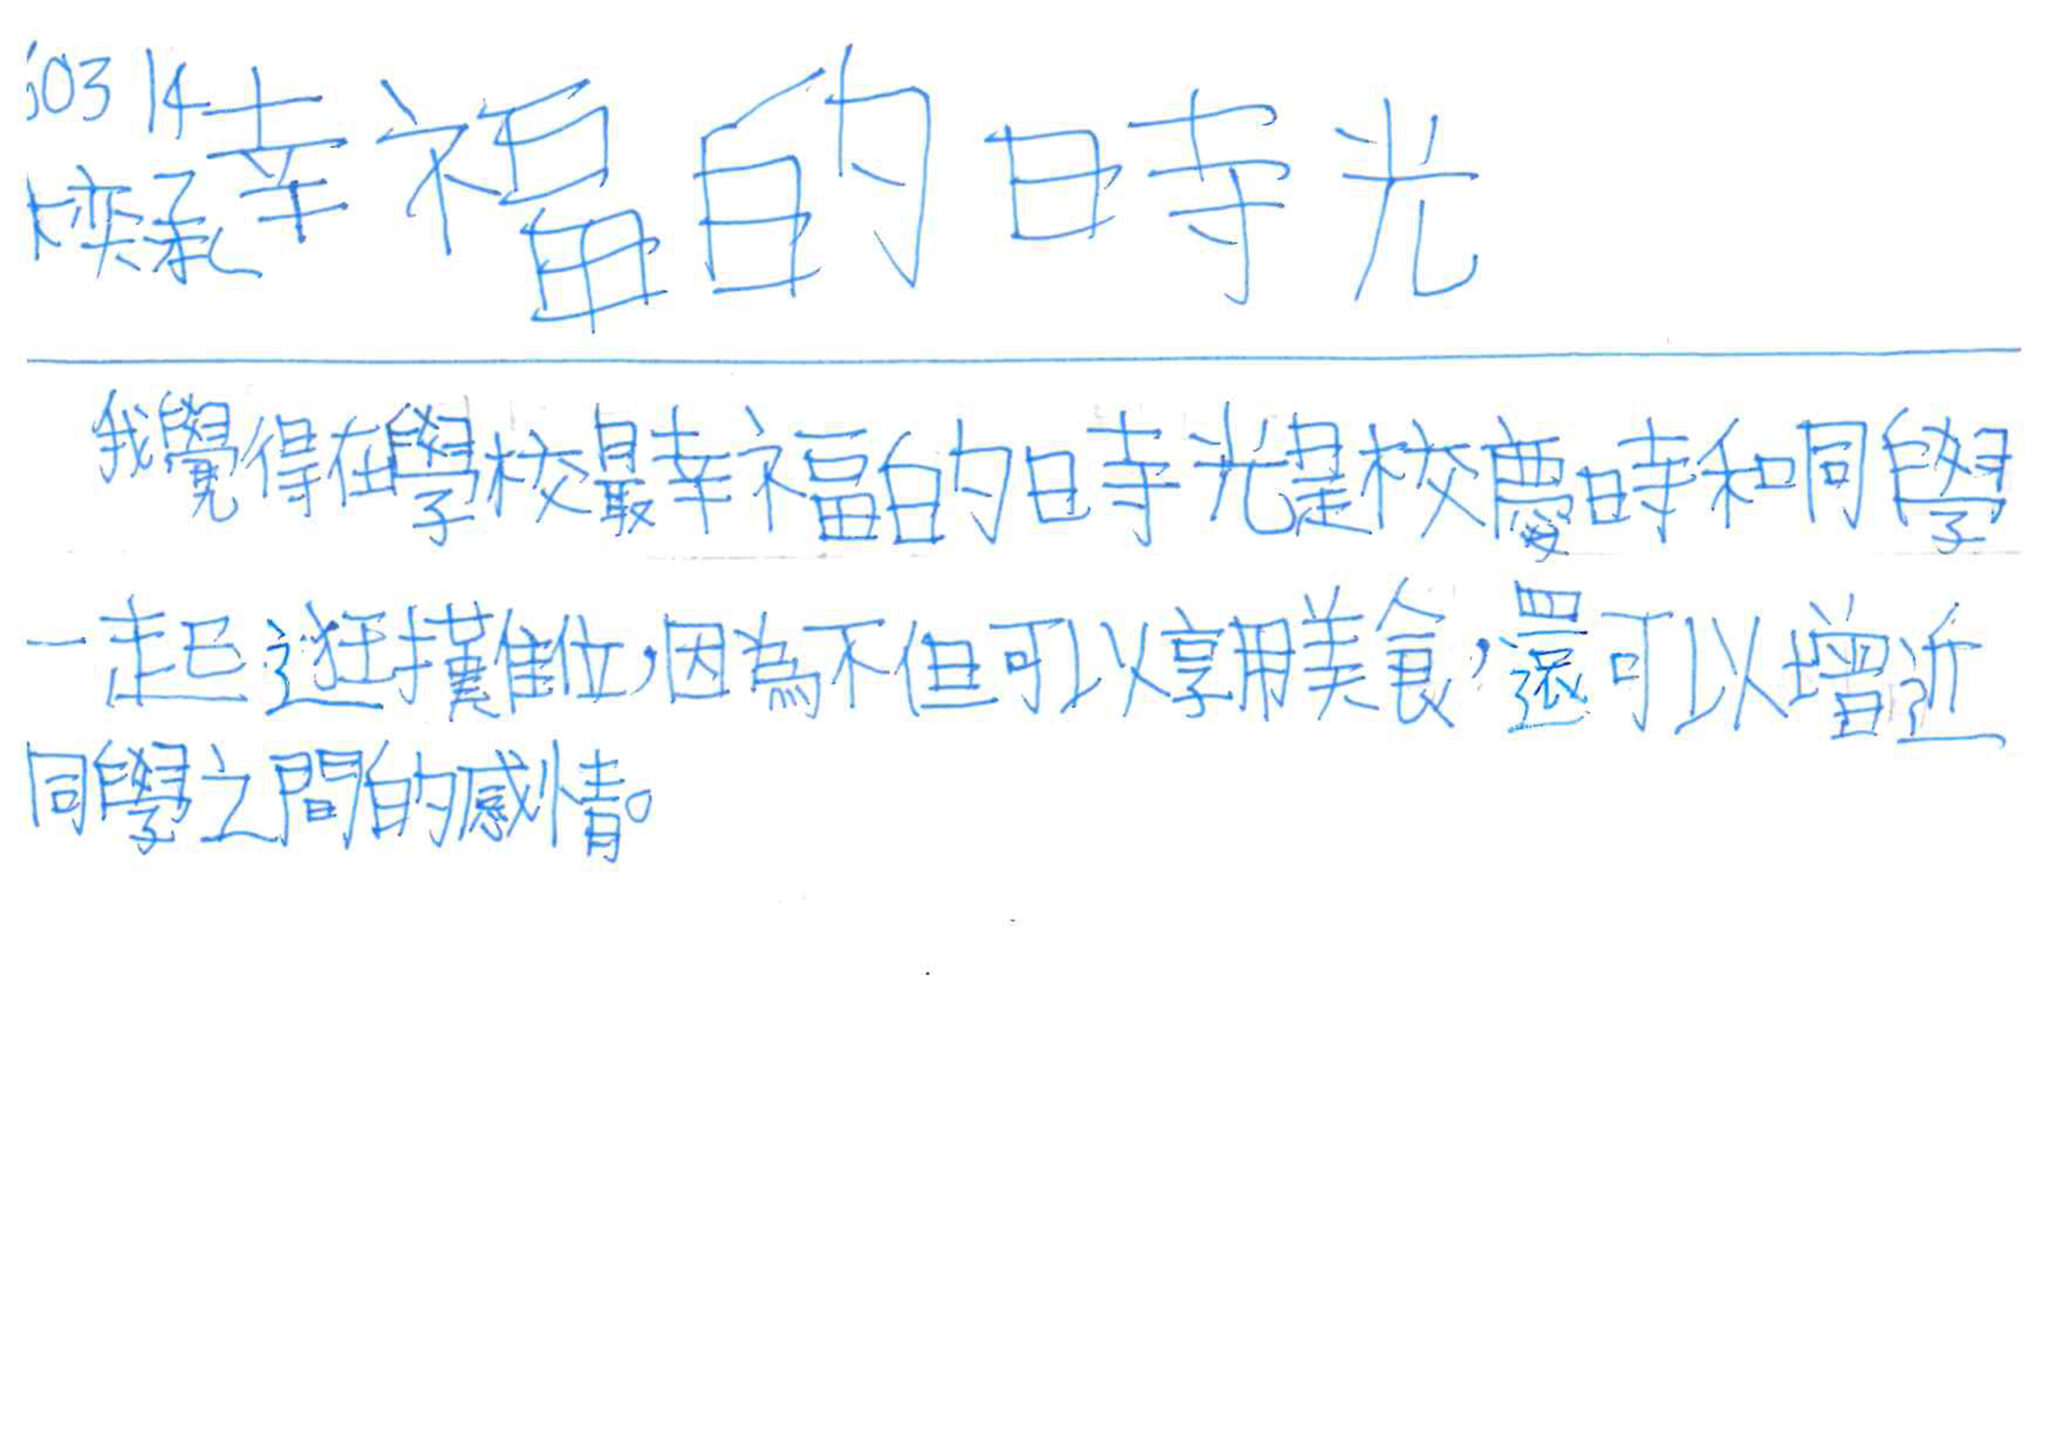 03 14 幸福的時光
奕承
我覺得在學校最幸福的時光是校慶時和同學
一起逛攤位，因為不但可以享用美食，還可以增近
同學之間的感情。